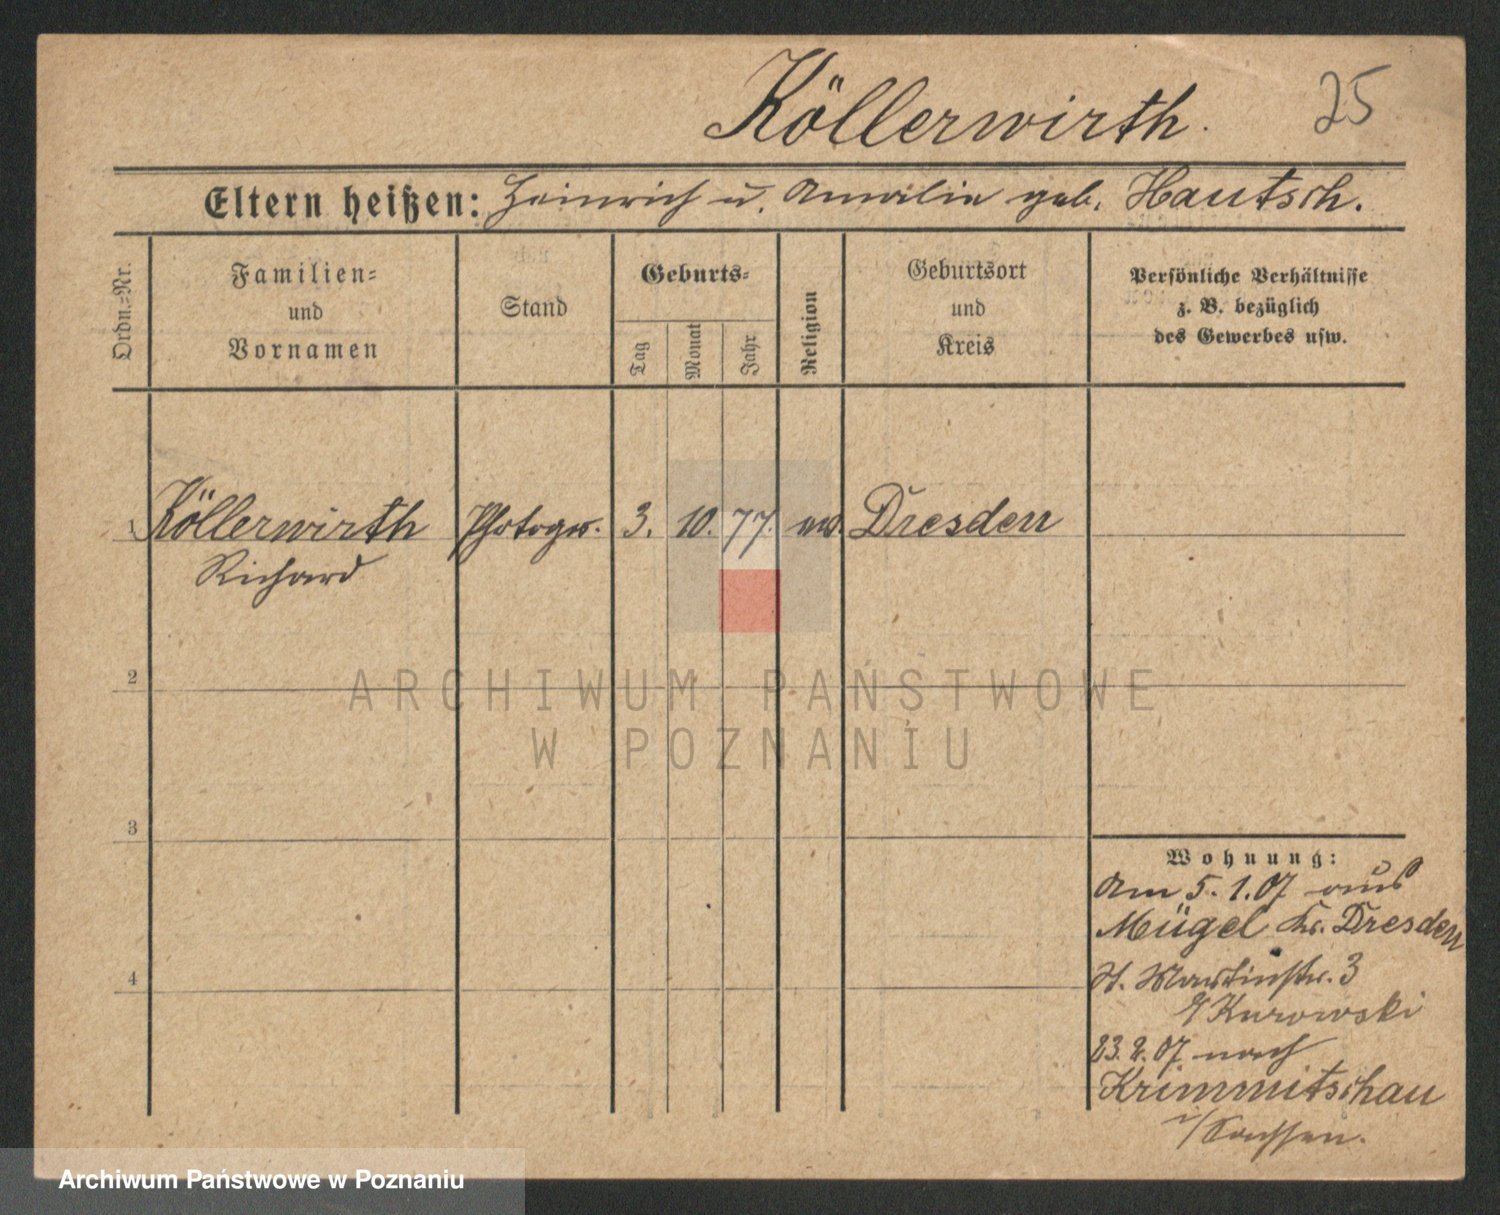 Köllerwirth.
25
Eltern heißen: Heinrich u. Amalie geb. Hautsch.
Ordn.-Nr.
Familien-
und
Vornamen
Stand
Geburts-
Tag
Monat
Jahr
Religion
Geburtsort
und
Kreis
Persönliche Verhältnisse
z. B. bezüglich
des Gewerbes usw.
1 Köllerwirth Photogr. 3. 10. 77. ev. Dresden
Richard
2
ARCHIWUM PAŃSTWOWE
W POZNANIU
3
Wohnung:
Am 5.1.07 aus
Mügel Kr. Dresden
4
St. Martinstr. 3
b/ Kurowski
23.2.07 nach
Krimmitschau
i/Sachsen.
Archiwum Państwowe w Poznaniu